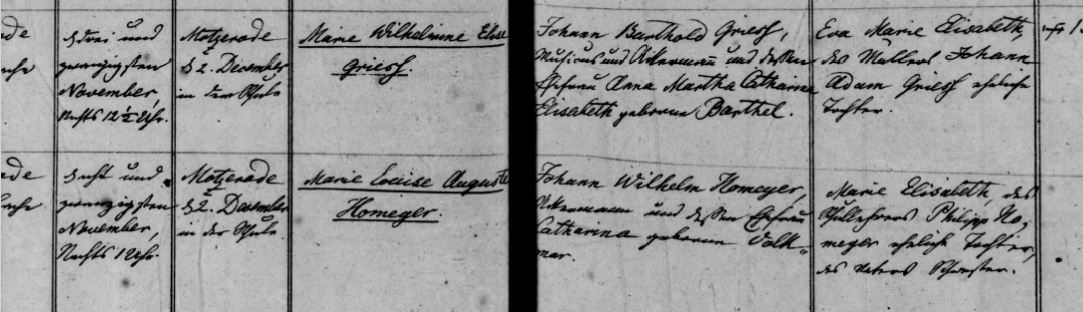 drei und
zwanzigsten
November,
Nachts 12½ Uhr.
Motzerode
d 2. December
in der Schule
Marie Wilhelmine Elise
Griesf.
Johann Barthold Griesf,
Musicus und Ackermann und dessen
Ehefrau Anna Martha Catharina
Elisabeth geborene Barthel.
Eva Marie Elisabeth,
des Müllers Johann
Adam Griesf eheliche
Tochter.
sechs und
zwanzigsten
November,
Nachts 1 Uhr.
Motzerode
d 2. December
in der Schule.
Marie Louise Auguste
Homeyer.
Johann Wilhelm Homeyer,
Ackermann und dessen Ehefrau
Catharina geborene Volk-
mar.
Marie Elisabeth, des
Schullehrers Philipp Ho,
meyer ehelich Tochter,
des Vaters Schwester.